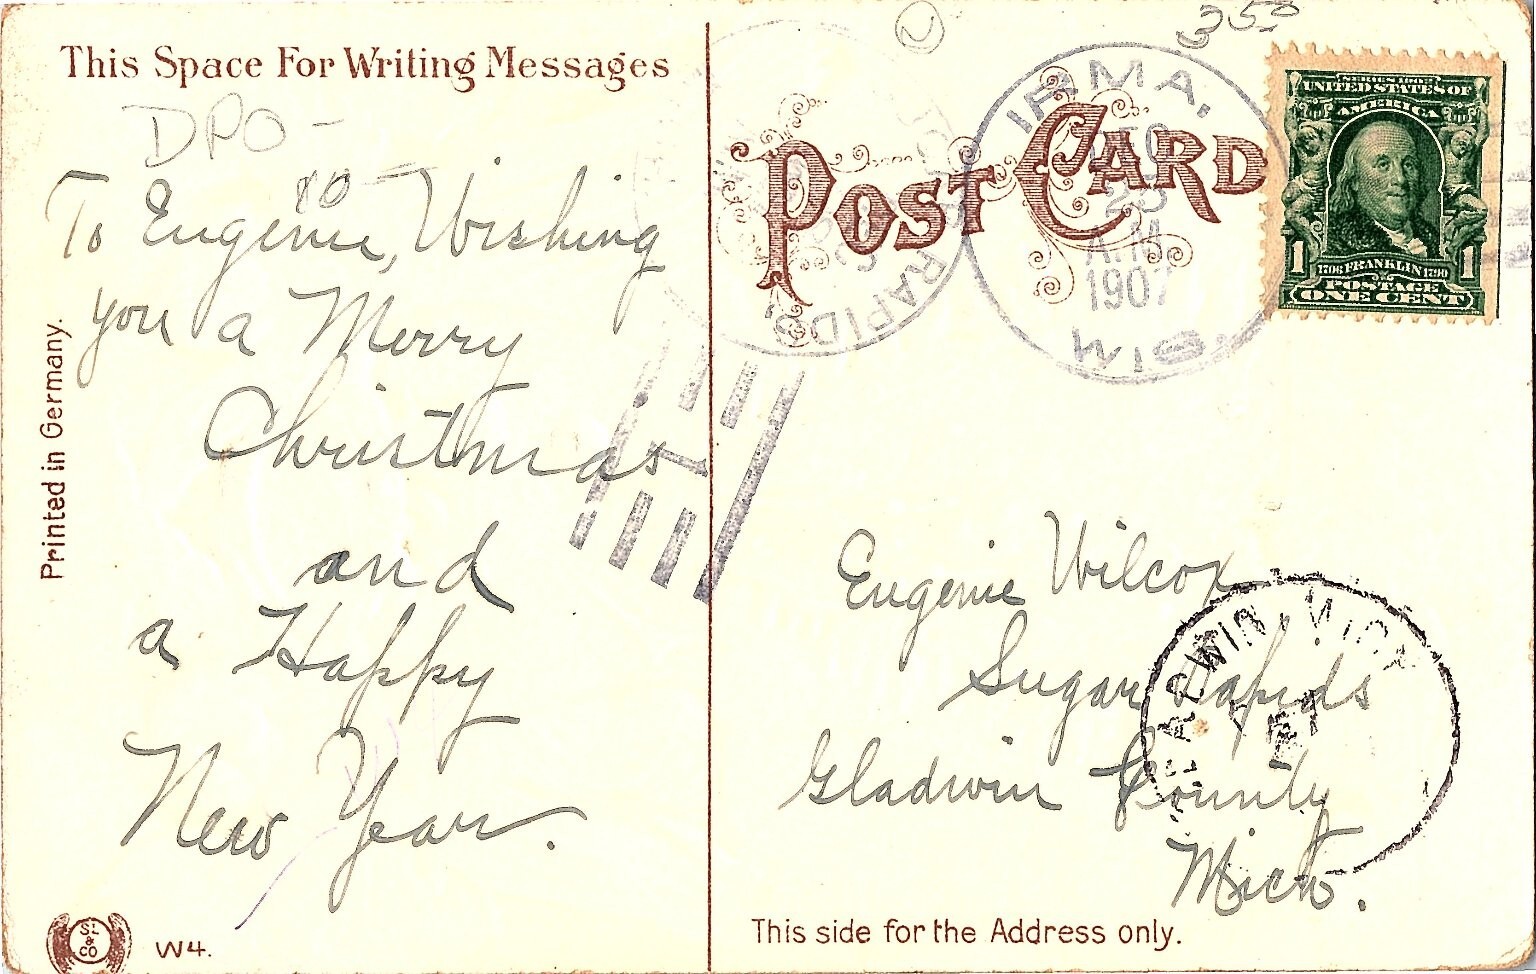 This Space For Writing Messages
DPO -
10 -
To Eugenie, Wishing
you a Merry
Christmas
and
a Happy
New Year.
Printed in Germany.
SL
&
Co
W4.
350
POST CARD
RAPIDS
IRMA,
23
A.M.
1907
WIS.
SERIES 1902
UNITED STATES OF
AMERICA
1
1706 FRANKLIN 1790
1
POSTAGE
ONE CENT
Eugenie Wilcox
Sugar Rapids
Gladwin County
Mich.
MICH
This side for the Address only.